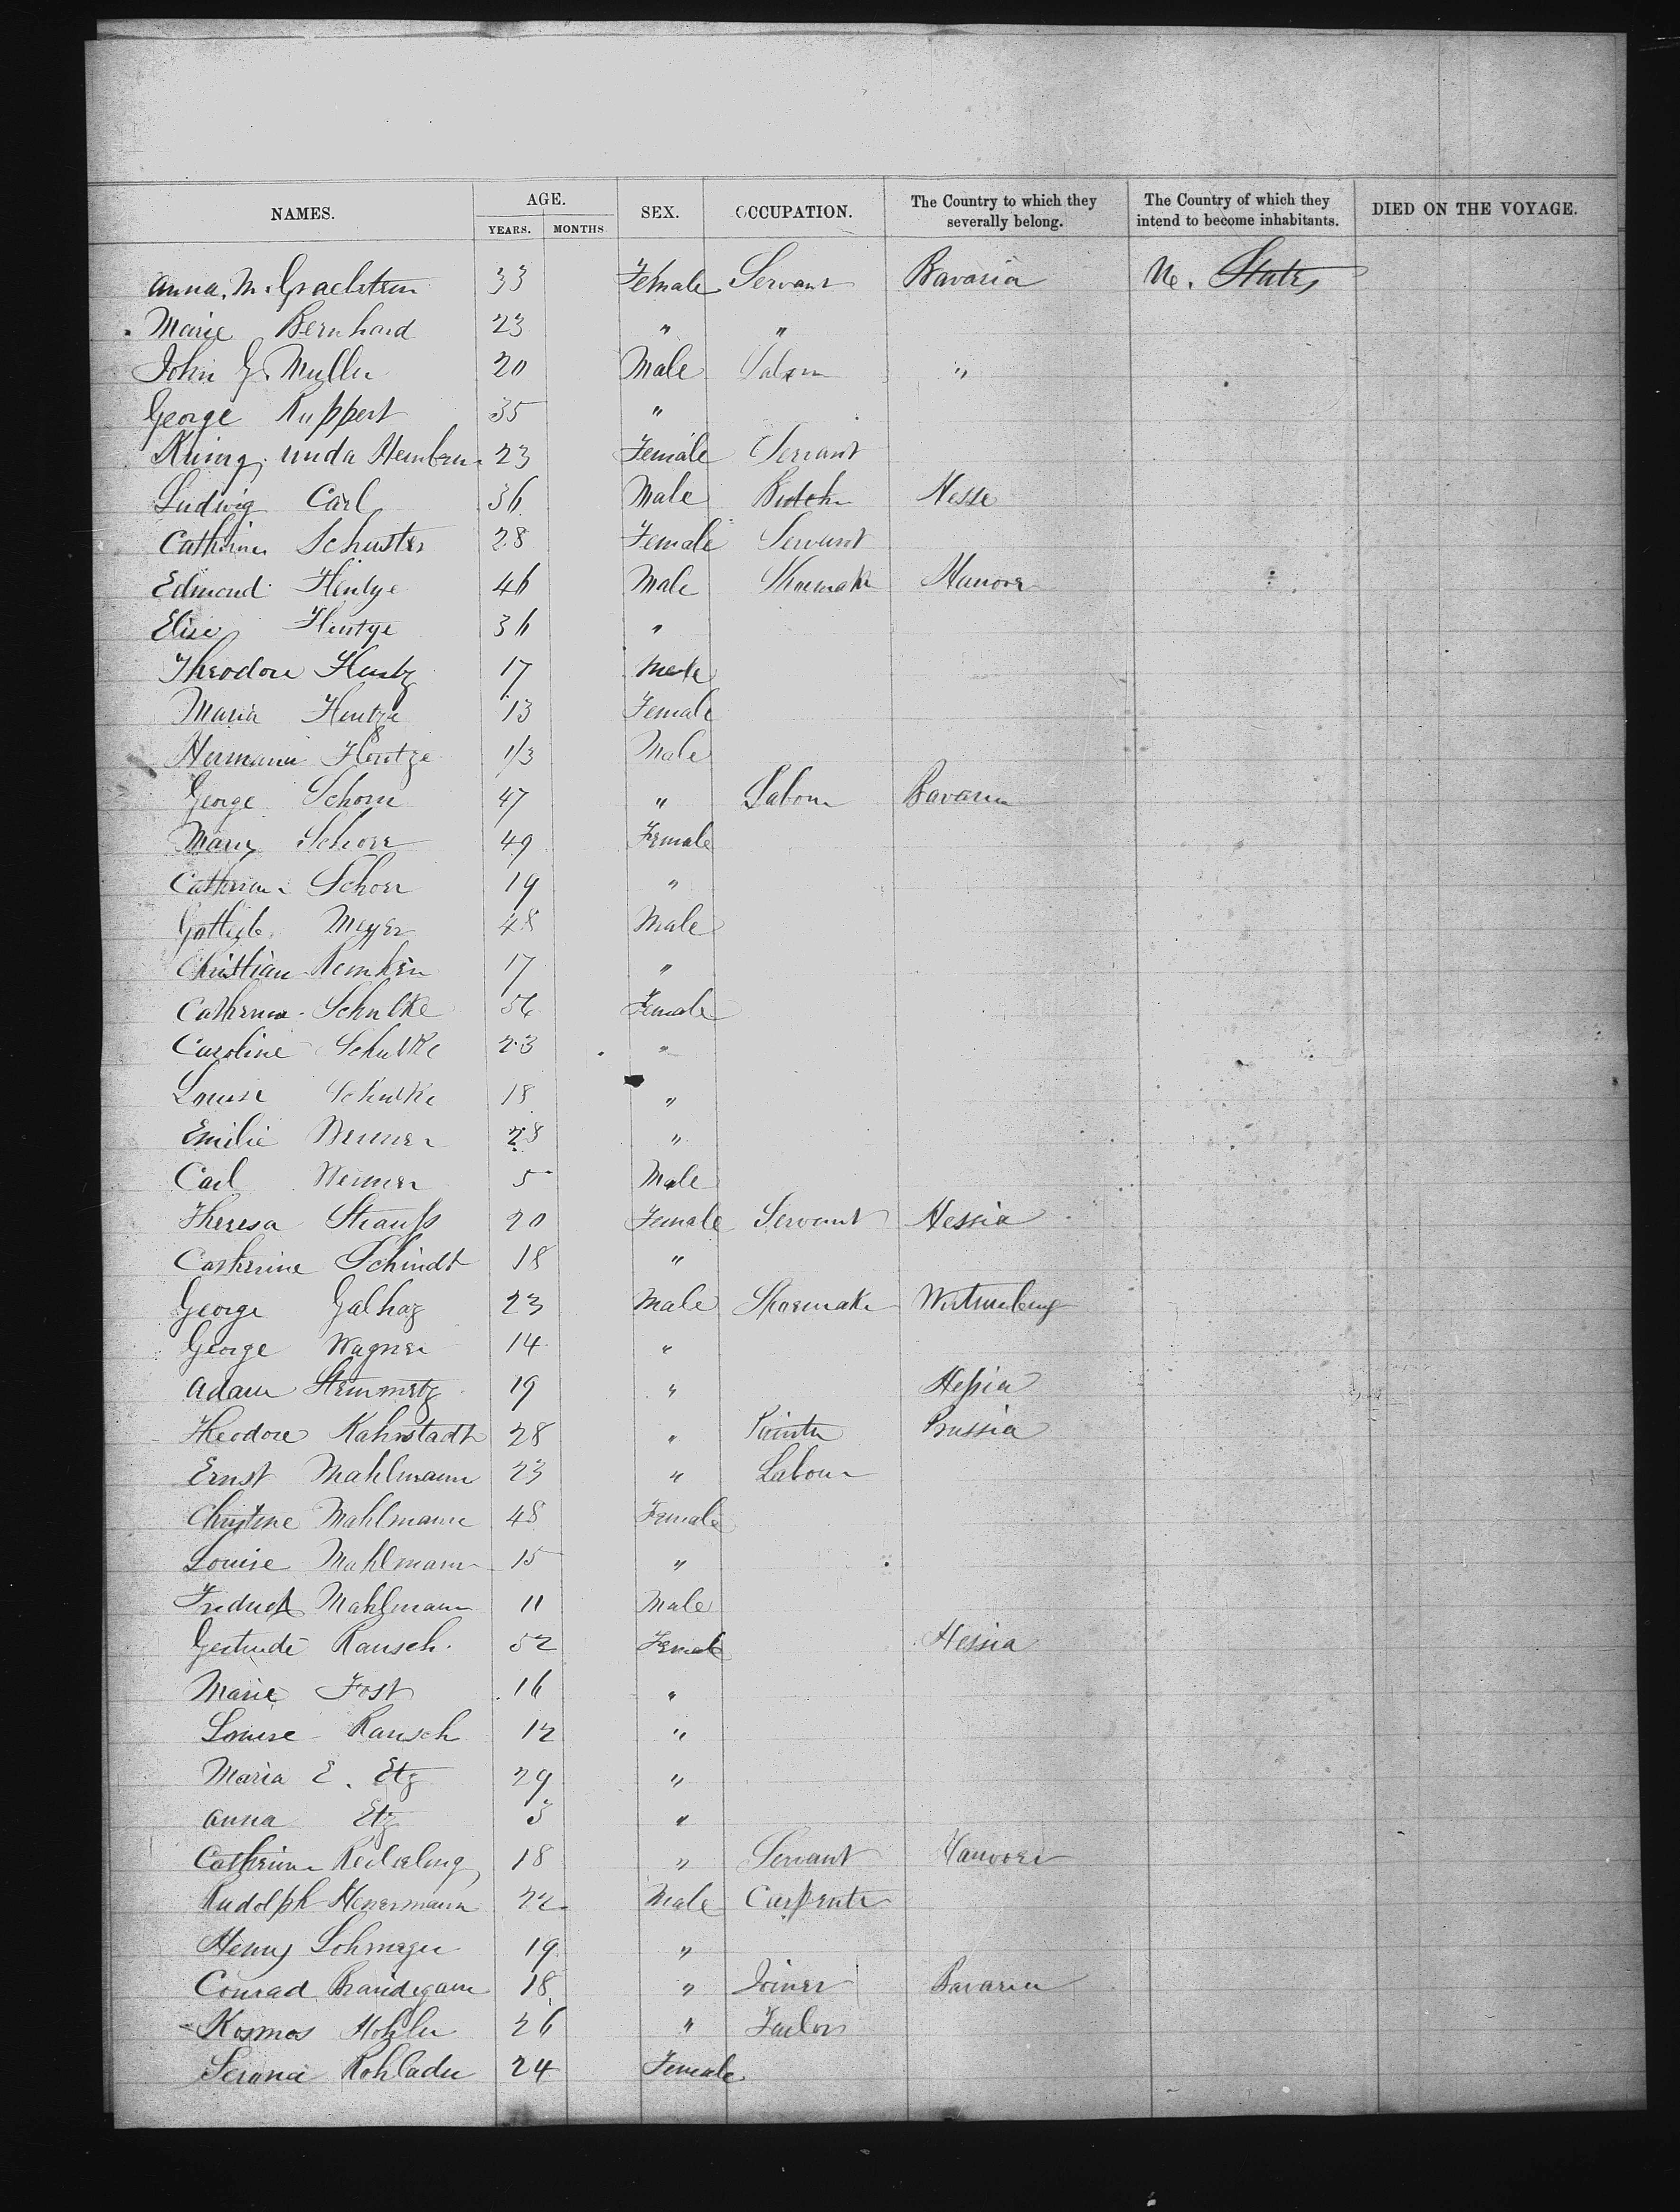 NAMES. AGE. YEARS. MONTHS SEX. OCCUPATION. The Country to which they severally belong. The Country of which they intend to become inhabitants. DIED ON THE VOYAGE.
Anna. M. 33 Female Servant Bavaria States
Marie Bernhard 23 " "
John G. Muller 20 Male "
George Ruppert 35 "
23 Female Servant
Ludwig Carl 36 Male Hesse
Schuster 28 Female Servant
Edmond Hentge 46 Male Shoemake Hanover
Elise Hentge 36 "
Theodore 17 Male
Maria Hentze 13 Female
Hermann Hentze 1/3 Male
George Schorr 47 " Labour Bavaria
Mary Schorr 49 Female
Schorr 19 "
Meyer 48 Male
Christian Remken 17 "
Schulke 56 Female
Caroline Schulke 23 "
Louise Schulke 18 "
Emilie Werner 28 "
Carl Werner 5 Male
Theresa Strauss 20 Female Servant Hessia
Catherine Schindt 18 "
George 23 Male Shoemake
George Wagner 14 "
Adam Steinmetz 19 " Hessia
Theodore Kahnstadt 28 " Prussia
Ernst Mahlmann 23 " Labour
Christine Mahlmann 48 Female
Louise Mahlmann 15 "
Mahlmann 11 Male
Gertrude Rausch. 52 Female Hessia
Marie Jost 16 "
Louise Rausch 12 "
Maria E. Etz 29 "
Anna Etz 3 "
18 " Servant Hanover
Rudolph 22 Male Carpente
Henry Lohmeyer 19 "
Conrad 18 " Joiner Bavaria
Kosmos 26 " Tailor
24 Female